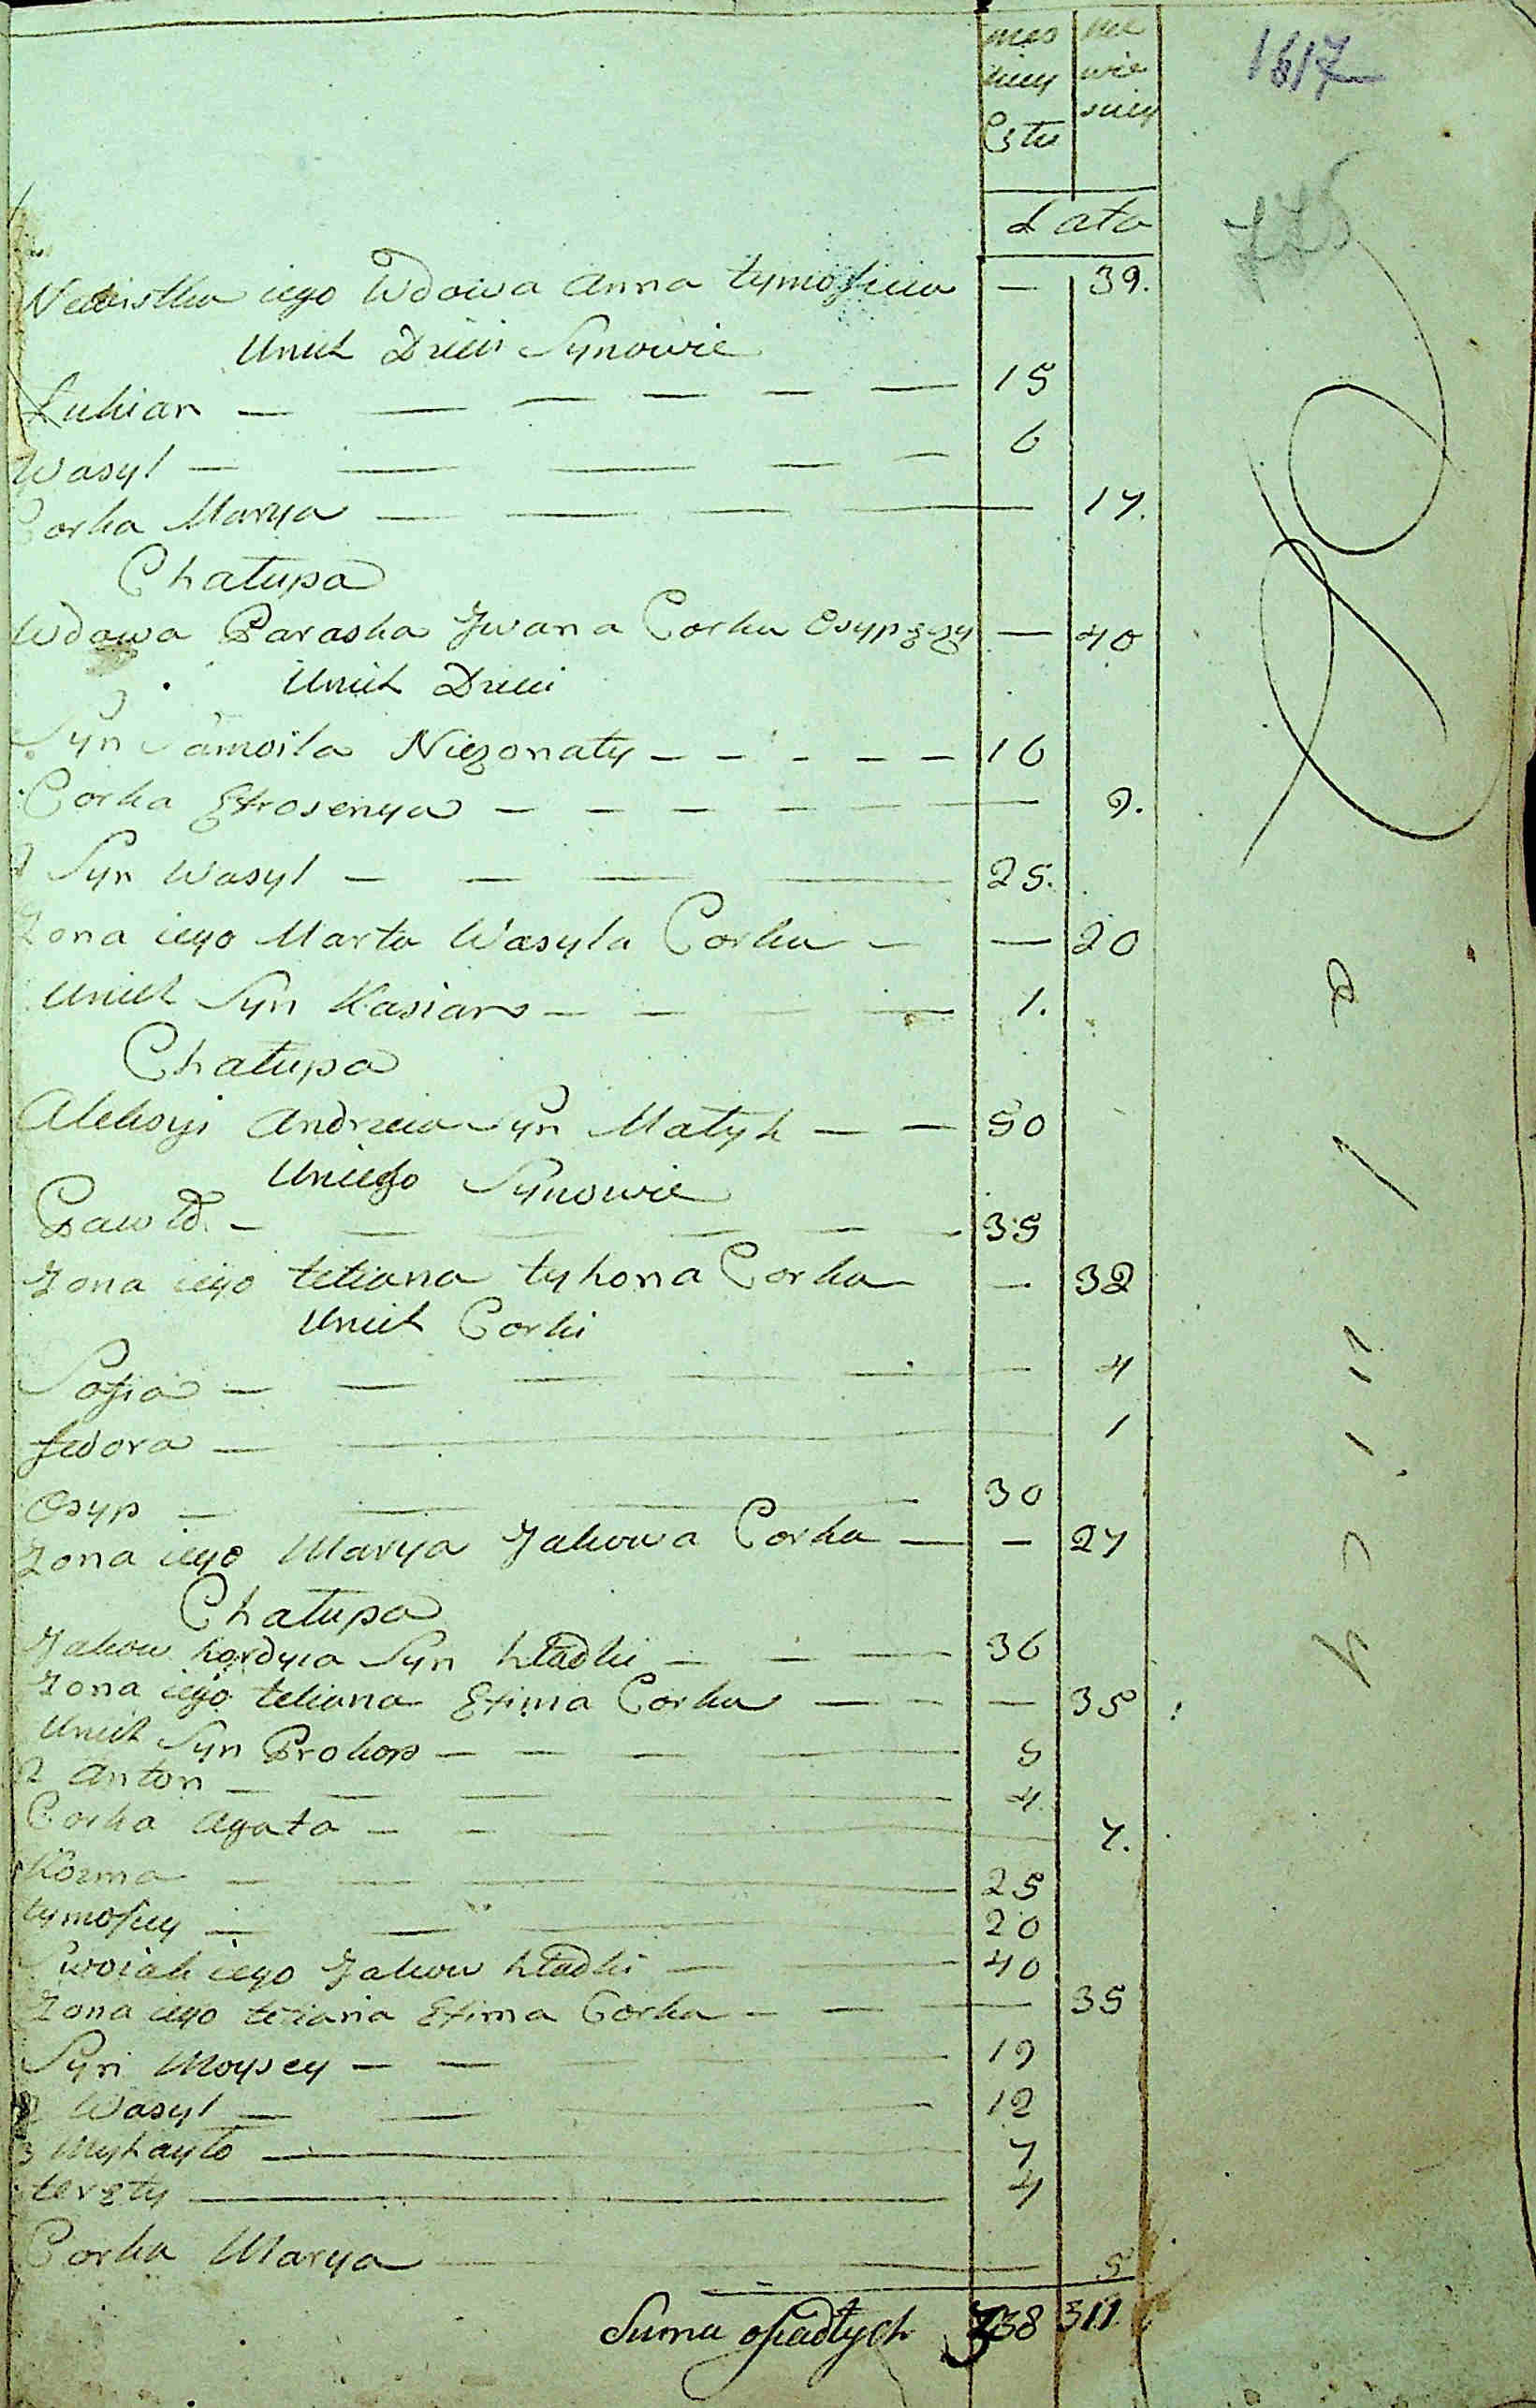 męs kiey Cstu | nie wie sciey
1617
Lata
775
Newistka iego Wdowa Anna tymofieia — 39.
Unich Dzieci Synowie
Łukian — 15
Wasyl — 6
Corka Marya — 17.
Chałupa
Wdowa Paraska Jwana Corka — 40
Unich Dzieci
Syn Samoila Nieżonaty — 16
Corka Efrosenya — 9.
2 Syn Wasyl — 25.
Żona iego Marta Wasyla Corka — 20
Unich Syn Kasian — 1.
Chałupa
Aleksyi Andrzeia Syn Małyk — 50
Uniego Synowie
Pawło — 35
Żona iego tetiana tyhona Corka — 32
Unich Corki
Sofia — 4
fedora — 1
Osyp — 30
Żona iego Marya Jakowa Corka — 27
Chałupa
Jakow hordyia Syn hładki — 36
Żona iego tetiana Efima Corka — 35
Unich Syn Prokop — 5
2 Anton — 4
Corka Agata — 7.
Kozma — 25
tymofiey — 20
Swoiak iego Jakow hładki — 40
Żona iego tetiana Efima Corka — 35
Syn Moysey — 19
2 Wasyl — 12
3 Myhayło — 7
teręty — 4
Corka Marya — 5
Suma osiadłych 338 311